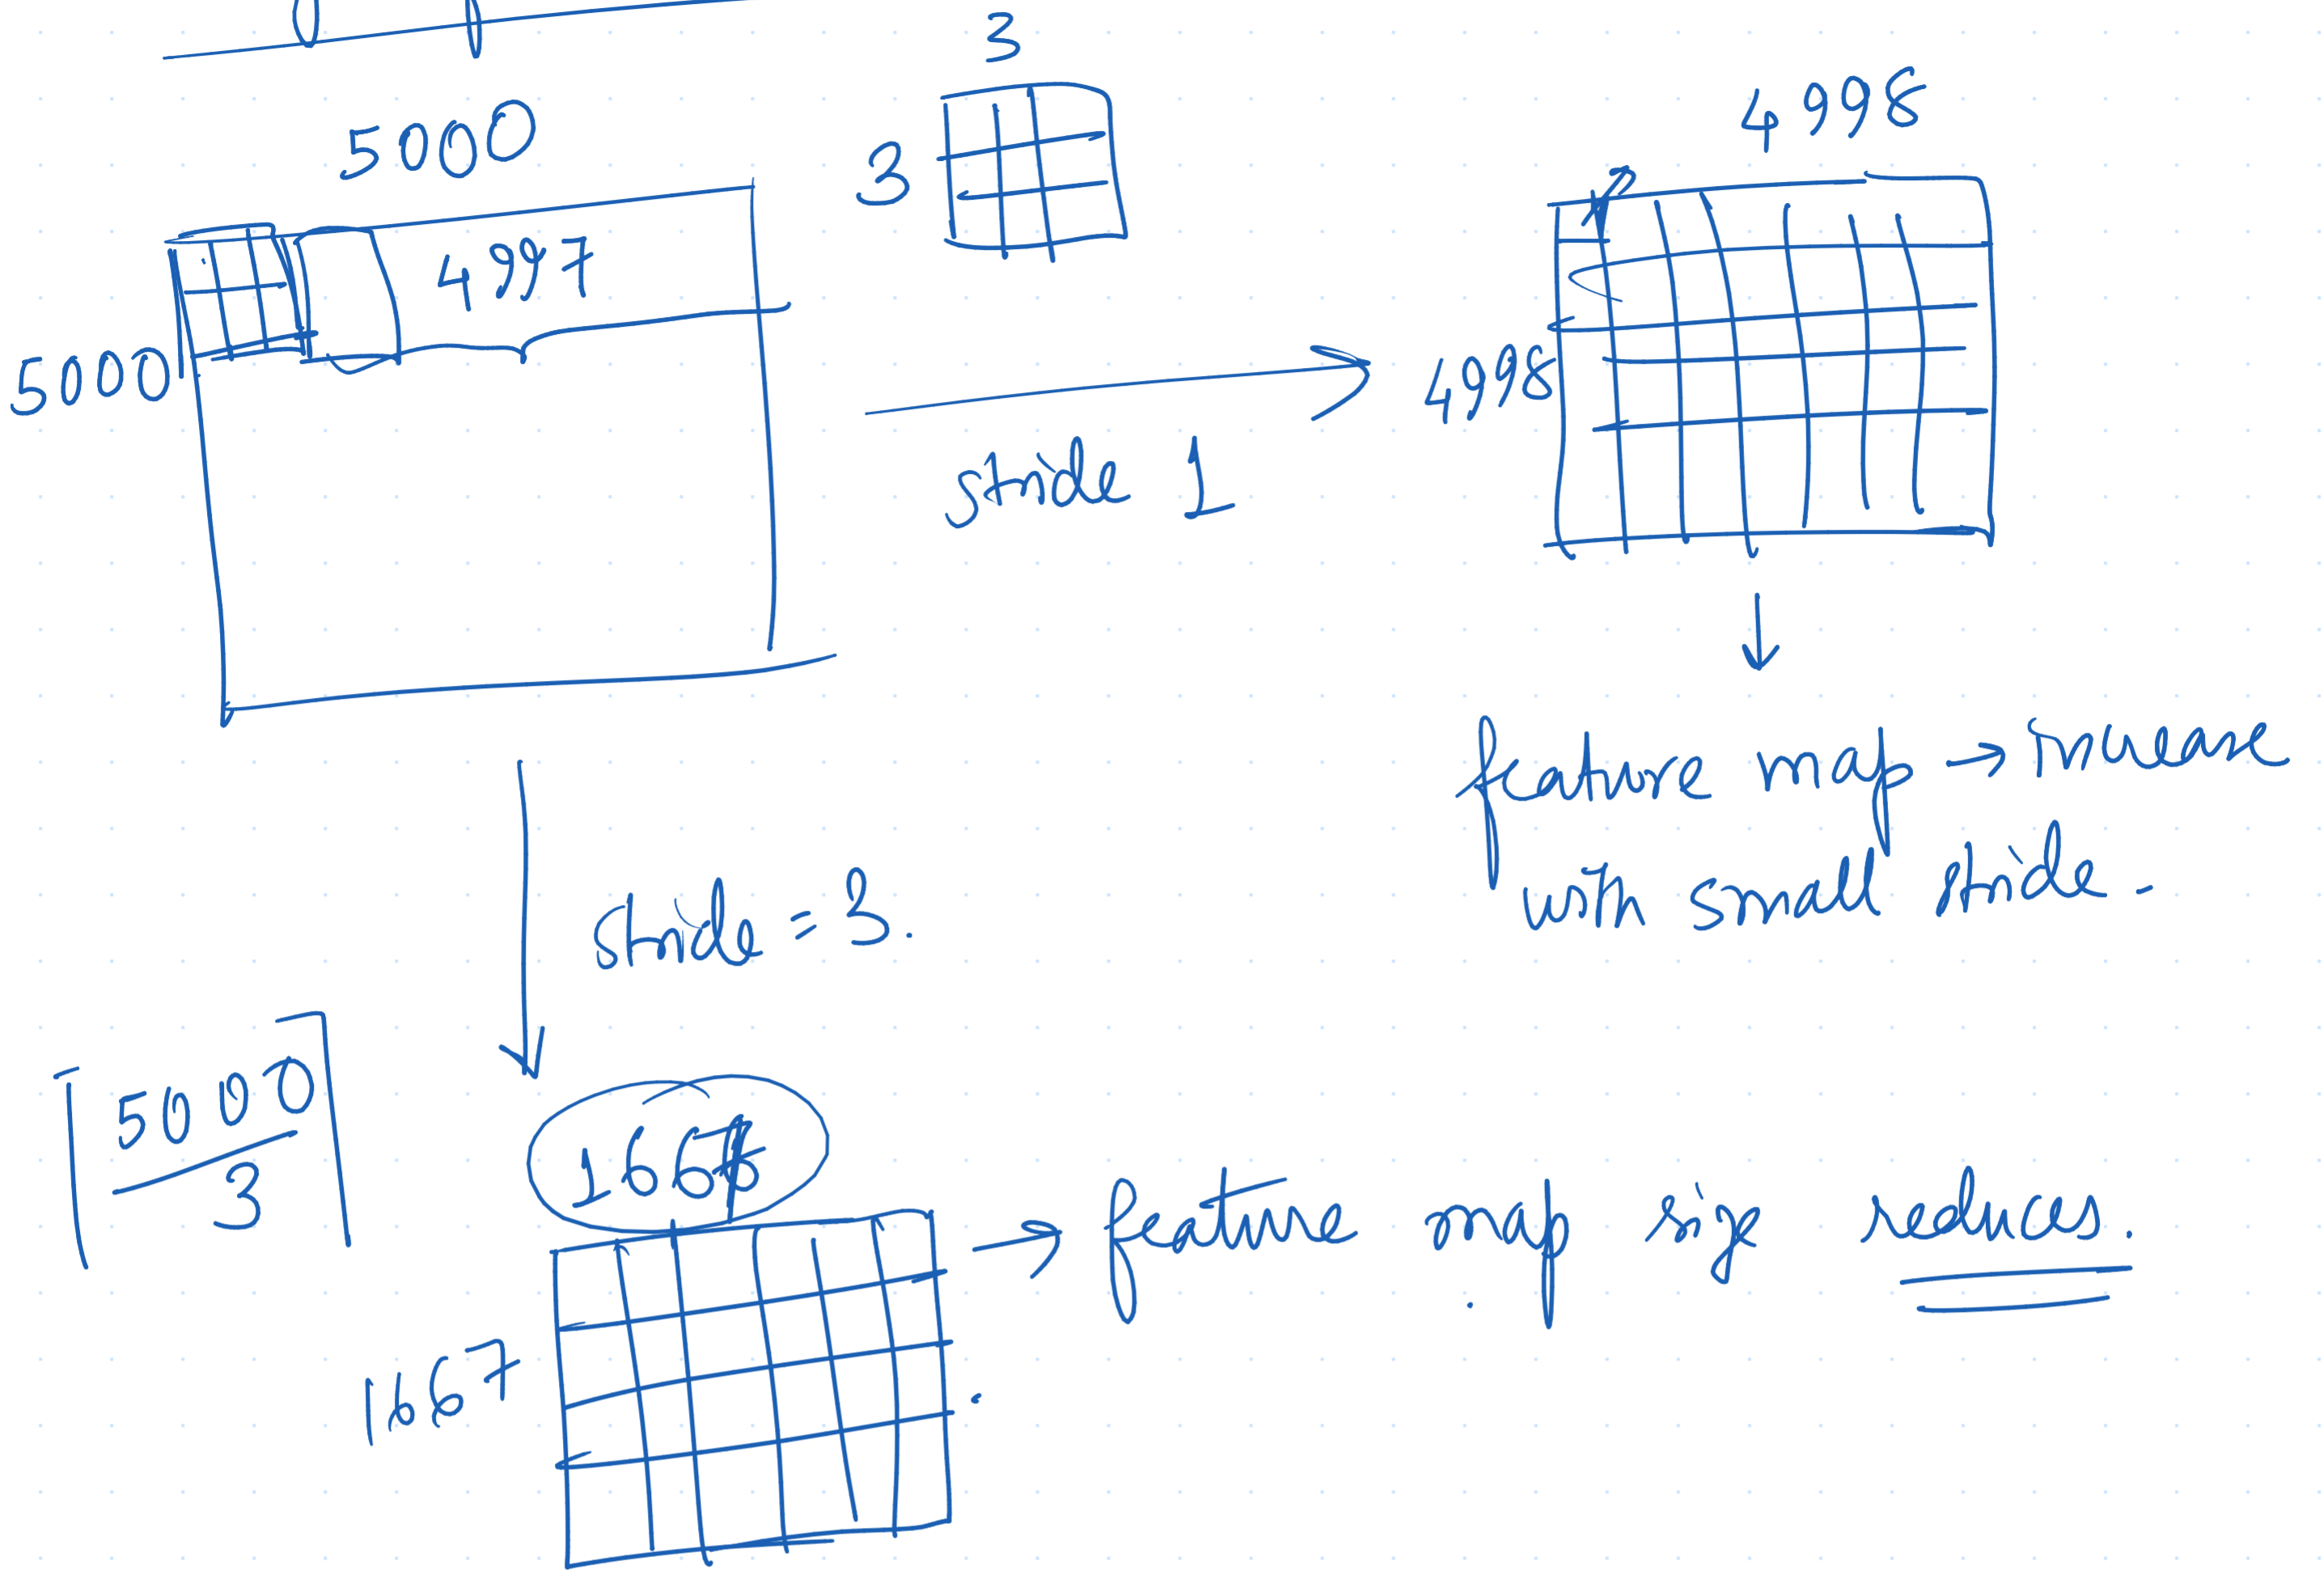 3
5000
3
4998
4997
5000
4998
stride 1
feature map → increase
with small stride.
stride = 3.
5000
3
1667
→ feature map size reduces.
1667